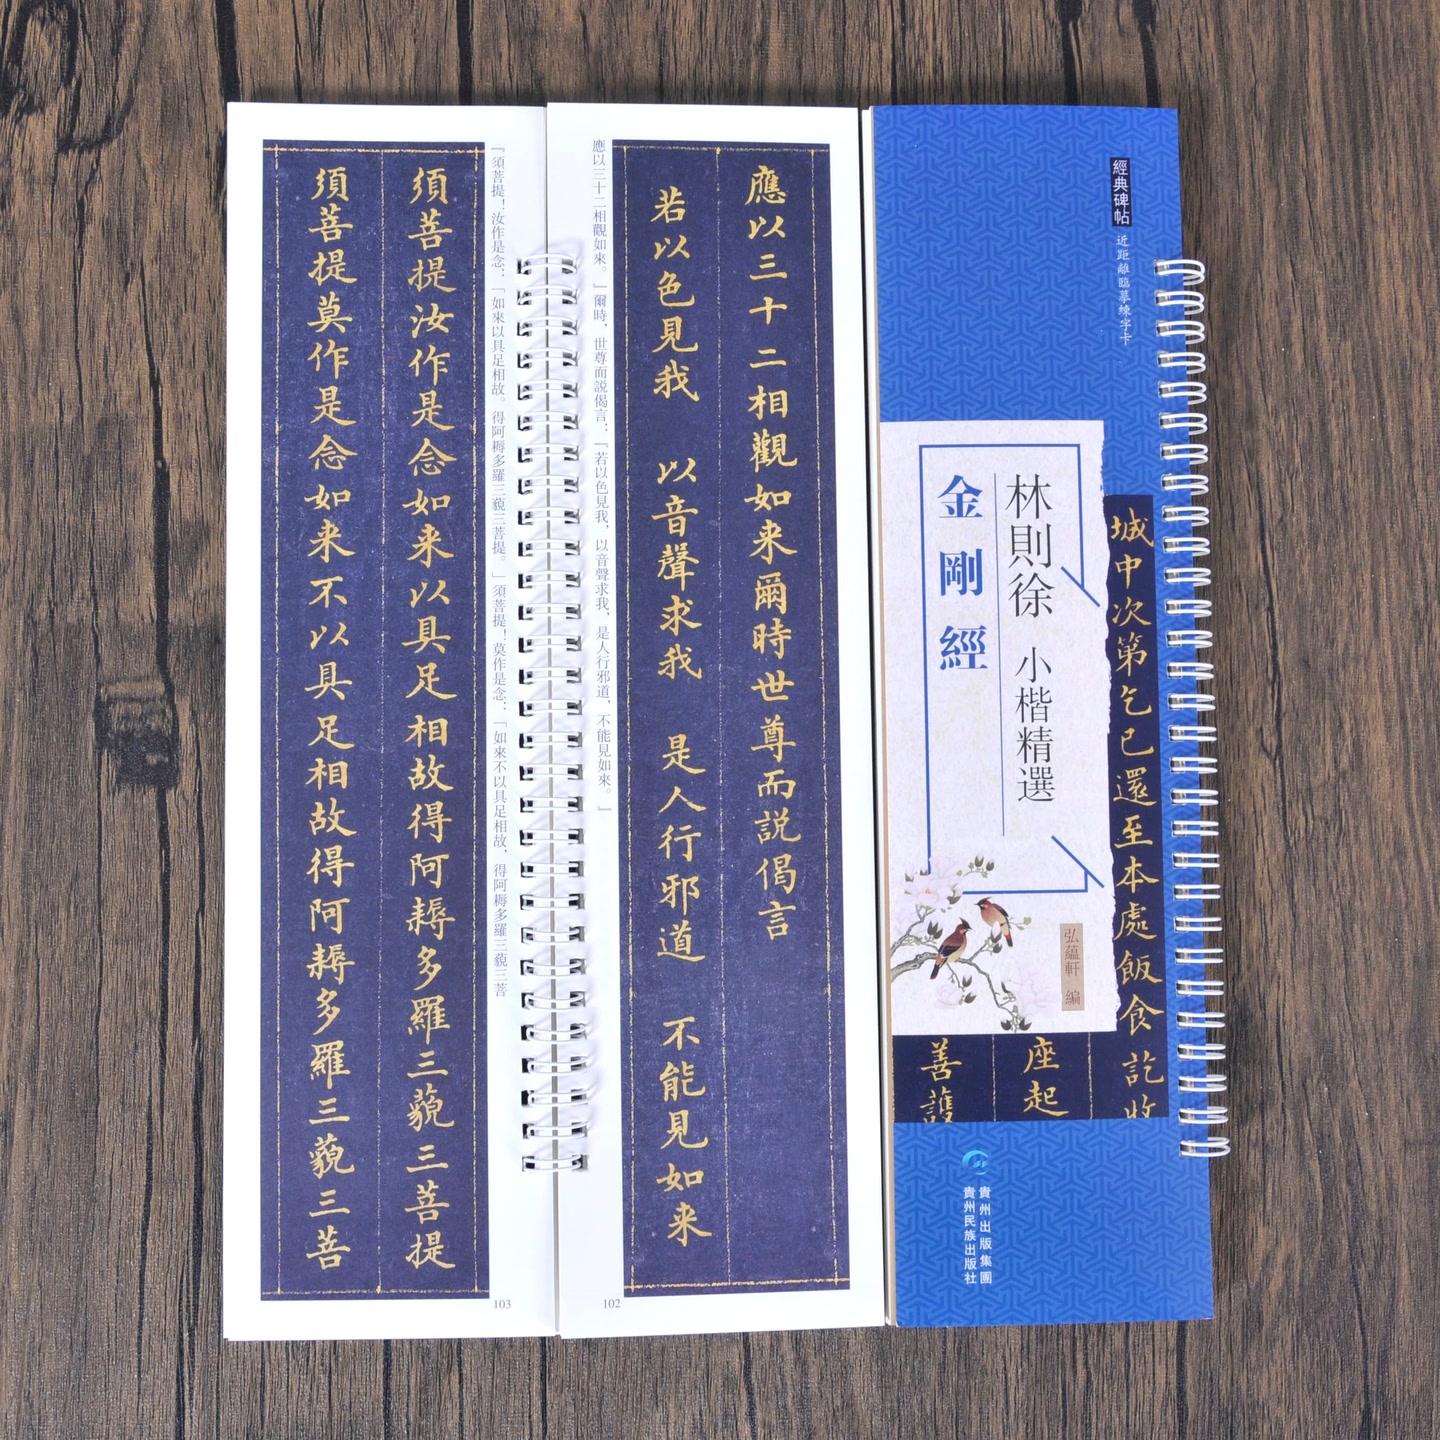 經典碑帖
近距離臨摹練字卡
林則徐 小楷精選
金剛經
弘蘊軒 編
城中次第乞已還至本處飯食訖收
座起
善護
貴州出版集團
貴州民族出版社
應以三十二相觀如来爾時世尊而説偈言
若以色見我 以音聲求我 是人行邪道 不能見如来
應以三十二相觀如來。』爾時，世尊而説偈言：『若以色見我，以音聲求我，是人行邪道，不能見如來。』
102
『須菩提！汝作是念：「如來以具足相故。得阿耨多羅三藐三菩提。」須菩提！莫作是念：「如來不以具足相故，得阿耨多羅三藐三菩
須菩提汝作是念如来以具足相故得阿耨多羅三藐三菩提
須菩提莫作是念如来不以具足相故得阿耨多羅三藐三菩
103